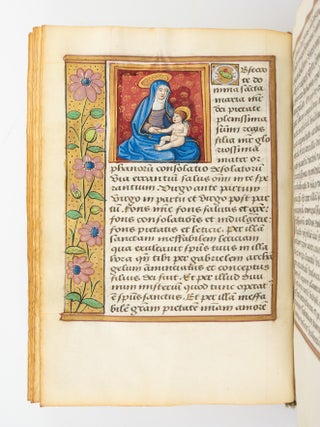 Obsecro
te do
mina sc̄ta
maria mr̄
dei pietate
plenissima
sum̄i regis
filia mr̄ glo
riosissima
mater or
phanorū consolatio desolatorū
via errantiū salus om̄i in te spe
rantium virgo ante partum
virgo in partu et virgo post par
tū. Fons mīe fons salutis et grē:
fons consolatiōis et indulgētie:
fons pietatis et leticie. Per illā
sanctam ineffabilem leticiam
qua exultauit sp̄us tuus in illa
hora qn̄ tibi per gabrielem archā
gelum annūtiatus et conceptus
filius dei fuit. Et per illud di
uinū misteriū quod tunc operat
ē sp̄us sanctus. Et per illā ineffa
bilē grām pietatē mīam amorē